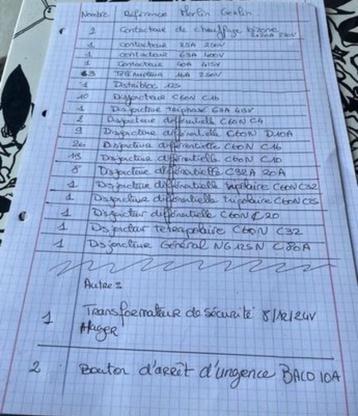 Nombre Reference Merlin Gerlin
2 Contacteur de chauffage bizone
1 contacteur 25A 250V
1 contacteur 63A 400V
1 contacteur 40A 415V
3 Télérupteur 16A 250V
1 Distribloc 125
10 Disjoncteur C60N C16
1 Disjoncteur Triphasé 63A 415V
2 Disjoncteur différentielle C60N C4
9 Disjoncteur différentielle C60N D10A
26 Disjoncteur différentielle C60N C16
13 Disjoncteur différentielle C60N C10
8 Disjoncteur différentielle C32A 20A
1 Disjoncteur différentielle tripolaire C60N C32
1 Disjoncteur différentielle tripolaire C60N
1 Disjoncteur différentielle C60N C20
1 Disjoncteur tetrapolaire C60N C32
1 Disjoncteur Général NG 125N C80A
Autres
1 Transformateur de sécurité 8/12/24V
Hager
2 Bouton d'arrêt d'urgence BACO 10A